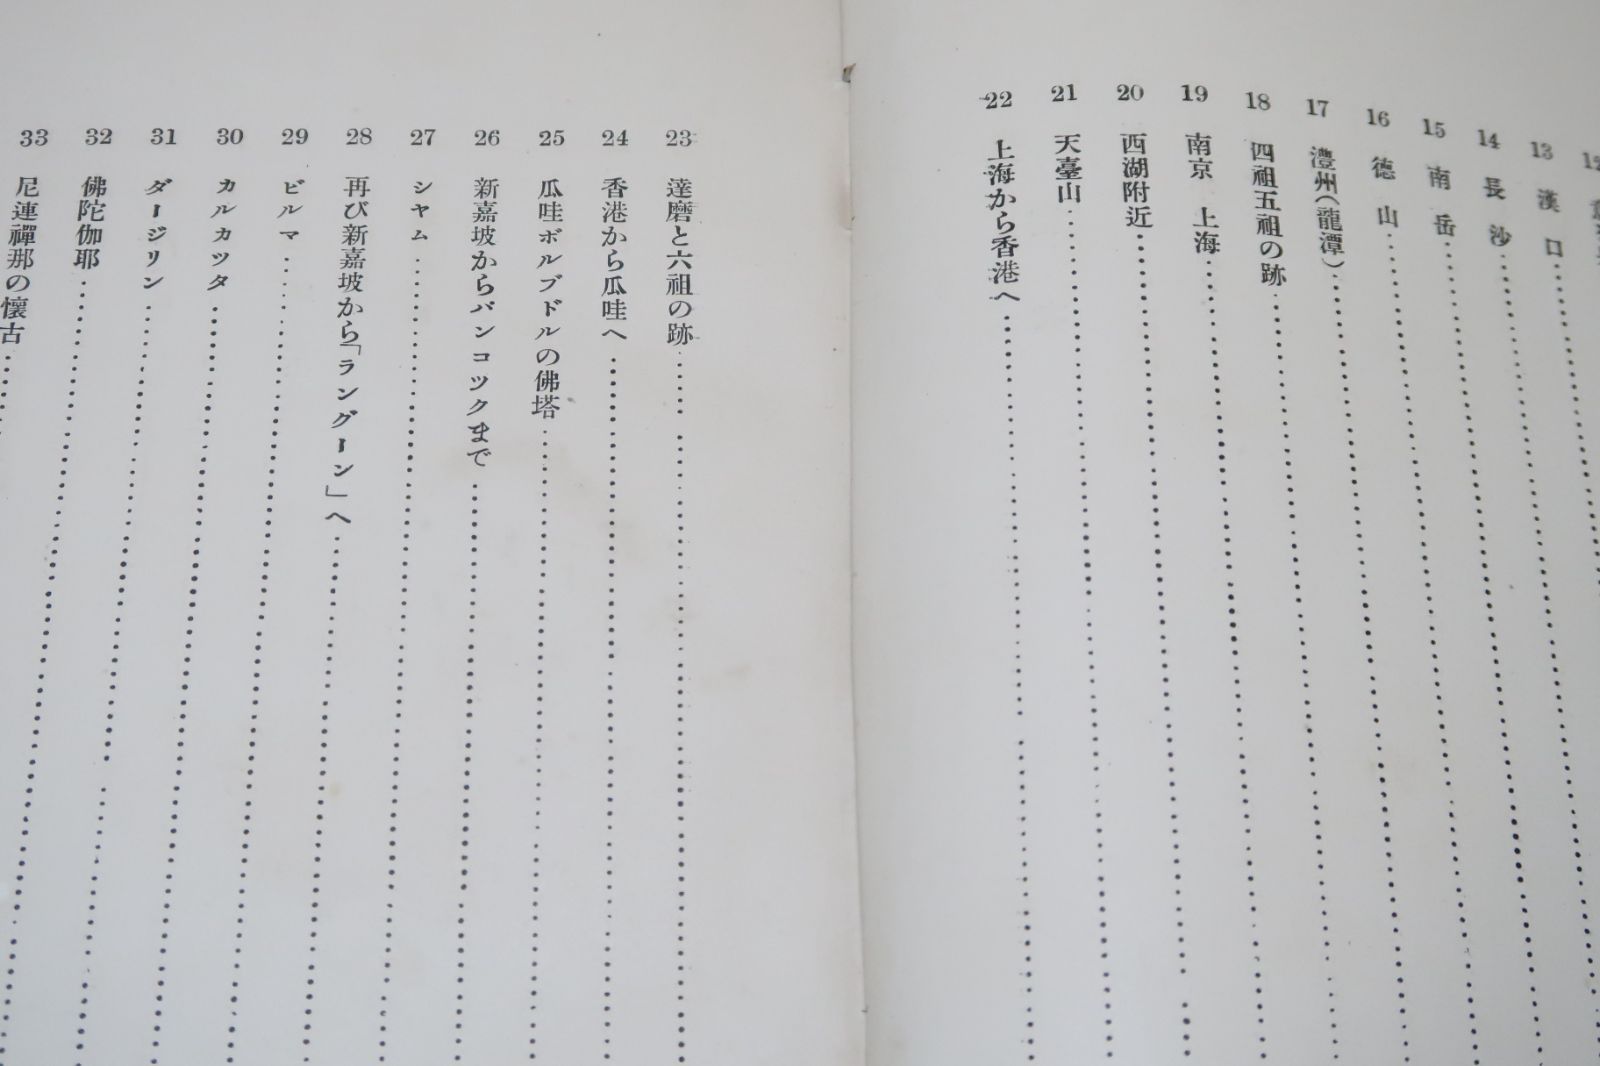 13 漢口
14 長沙
15 南岳
16 徳山
17 澧州(龍潭)
18 四祖五祖の跡
19 南京 上海
20 西湖附近
21 天臺山
22 上海から香港へ
23 達磨と六祖の跡
24 香港から瓜哇へ
25 瓜哇ボルブドルの佛塔
26 新嘉坡からバンコツクまで
27 シヤム
28 再び新嘉坡から「ラングーン」へ
29 ビルマ
30 カルカツタ
31 ダージリン
32 佛陀伽耶
33 尼連禪那の懷古